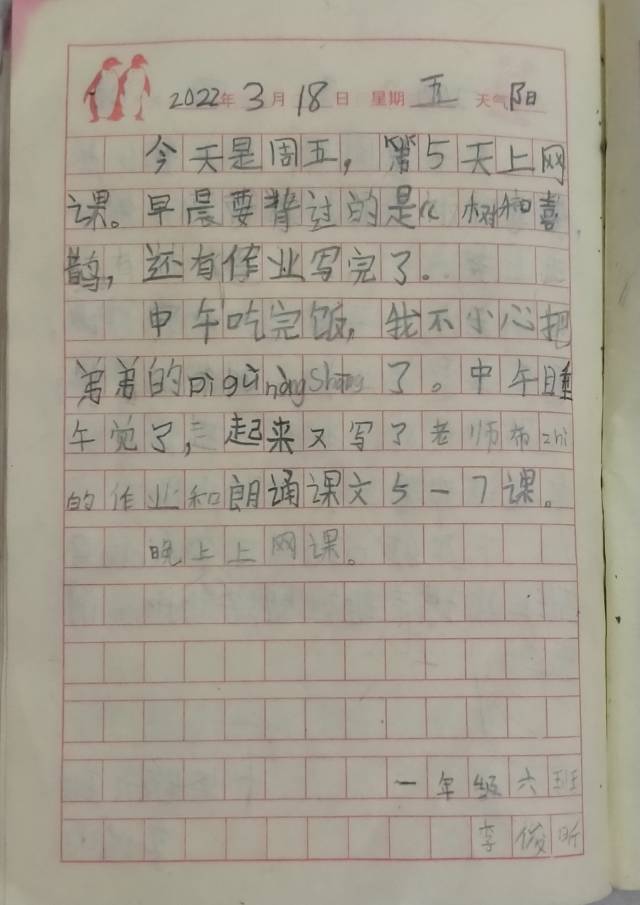 2022年 3月 18日 星期 五 天气 阳
今天是周五，第5天上网
课。早晨要背过的是 树和喜
鹊，还有作业写完了。
中午吃完饭，我不小心把
弟弟的pigǔ nòng shang了。中午睡
午觉了，起来又写了老师布zhi
的作业和朗诵课文5一7课。
晚上上网课。
一年级六班
李俊昕